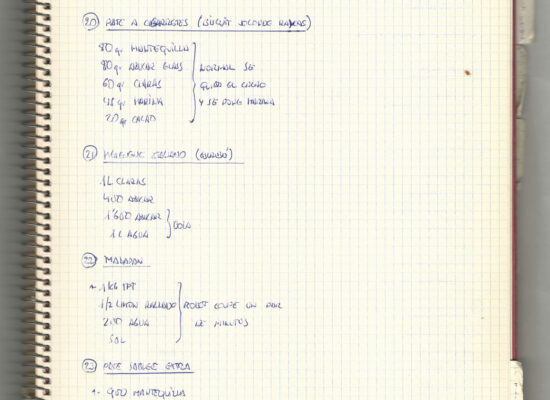 20) PATE A CIGARRETES (BISCUIT JOCONDE RAYAS)
80 gr MANTEQUILLA
80 gr AZUCAR GLAS
60 gr CLARAS
45 gr HARINA
20 gr CACAO
NORMAL SE
QUITA EL CACAO
Y SE PONE HARINA
21) MERENGUE ITALIANO
1L CLARAS
400 AZUCAR
1'600 AZUCAR
1L AGUA
BOLA
22) MAZAPAN
1 KG TPT
1/2 LIMON RALLADO
200 AGUA
SAL
ROBOT COUPE UN PAR
DE MINUTOS
23) PATE SABLEE EXTRA
1- 900 MANTEQUILLA